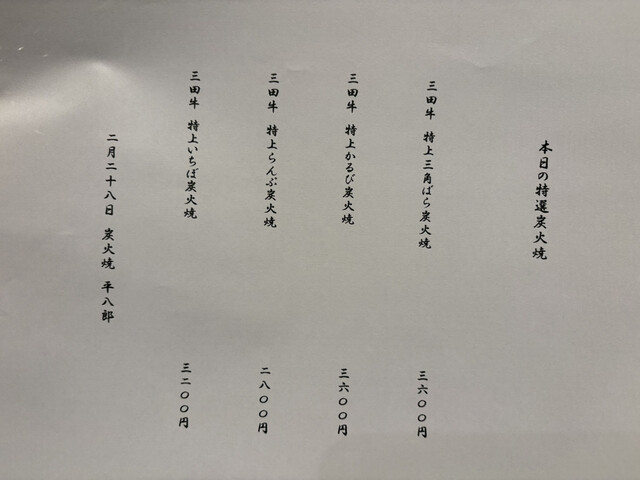 本日の特選炭火焼
三田牛 特上三角ばら炭火焼 三六〇〇円
三田牛 特上かるび炭火焼 三六〇〇円
三田牛 特上らんぷ炭火焼 二八〇〇円
三田牛 特上いちぼ炭火焼 三二〇〇円
二月二十八日 炭火焼 平八郎